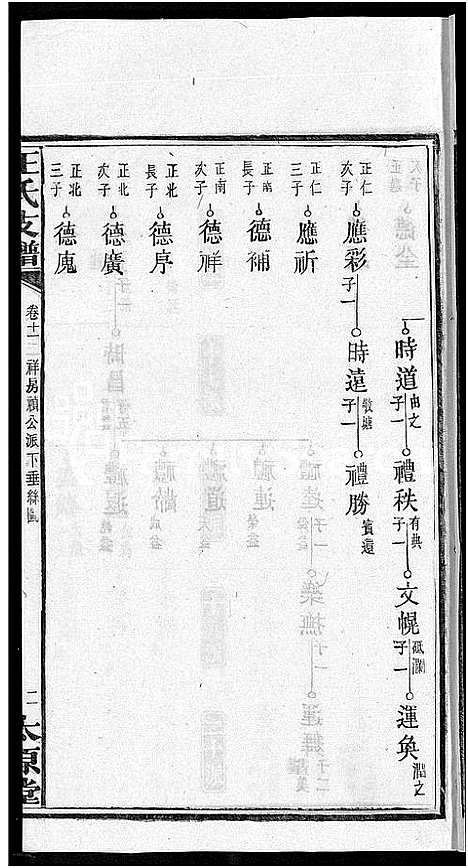 時道 由文 子一 禮秩 有典 子一 文幌 砥瀾 子一 運奐 潤之
正仁 次子 應彩 子一 時遠 敬塘 子一 禮勝 賓遠
正仁 三子 應祈
正南 長子 德補
正南 次子 德祥
正北 長子 德序
正北 次子 德廣
正北 三子 德廆
王氏支譜 卷十一 祥房頎公派下垂絲圖 二 太原堂